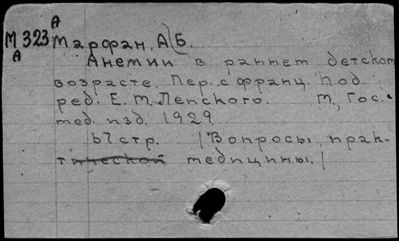 А
М 323 Марфан, А. Б.
А
Анемии в раннем детском
возрасте. Пер. с франц. под
ред. Е. М. Лепского. М., Гос.
мед. изд. 1929.
67стр. (Вопросы прак-
тической медицины.)